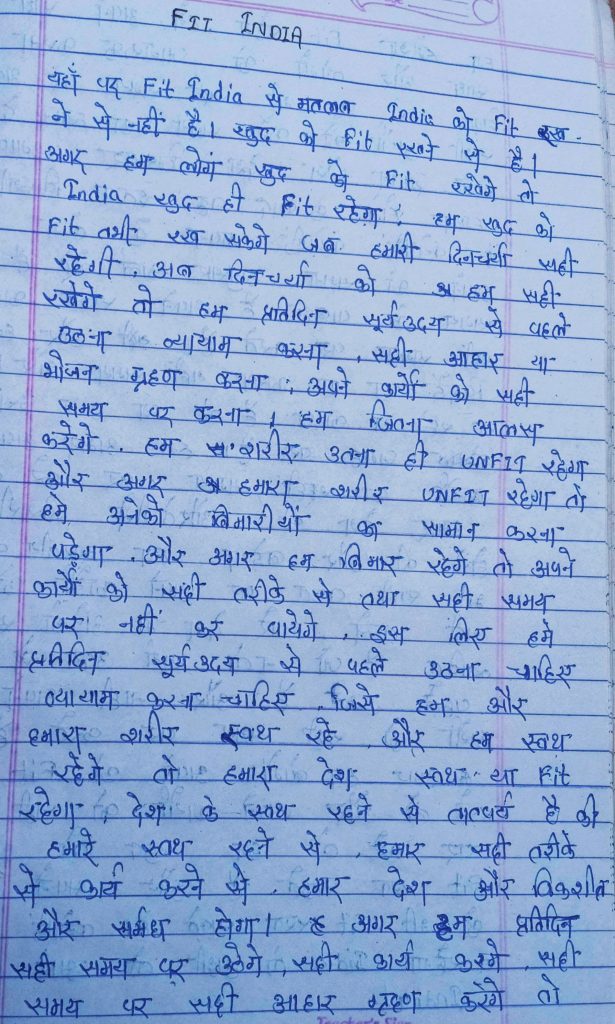 FIT INDIA
यहाँ पर Fit India से मतलब India को Fit रख-
ने से नहीं है। खुद को Fit रखने से है।
अगर हम लोग खुद को Fit रखेगे तो
India खुद ही Fit रहेगा, हम खुद को
Fit तभी रख सकेगे जब हमारी दिनचर्या सही
रहेगी, अब दिनचर्या को हम सही
रखेगे तो हम प्रतिदिन सूर्य उदय से पहले
उठना व्यायाम करना, सही आहार या
भोजन ग्रहण करना, अपने कार्यो को सही
समय पर करना, हम जितना आलस
करेगे, हम शरीर उतना ही UNFIT रहेगा
और अगर हमारा शरीर UNFIT रहेगा तो
हमे अनेको बिमारीयों का सामान करना
पड़ेगा, और अगर हम बिमार रहेगे तो अपने
कार्यों को सही तरीके से तथा सही समय
पर नहीं कर पायेगे, इस लिए हमे
प्रतिदिन सूर्य उदय से पहले उठना चाहिए
व्यायाम करना चाहिए, जिसे हम और
हमारा शरीर स्वथ रहे, और हम स्वथ
रहेगे तो हमारा देश स्वथ या Fit
रहेगा, देश के स्वथ रहने से तात्पर्य है की
हमारे स्वथ रहने से, हमार सही तरीके
से कार्य करने से, हमार देश और विकशील
और सर्मथ होगा। अगर हम प्रतिदिन
सही समय पर उठेगे, सही कार्य करगे, सही
समय पर सही आहार ग्रहण करेगे तो